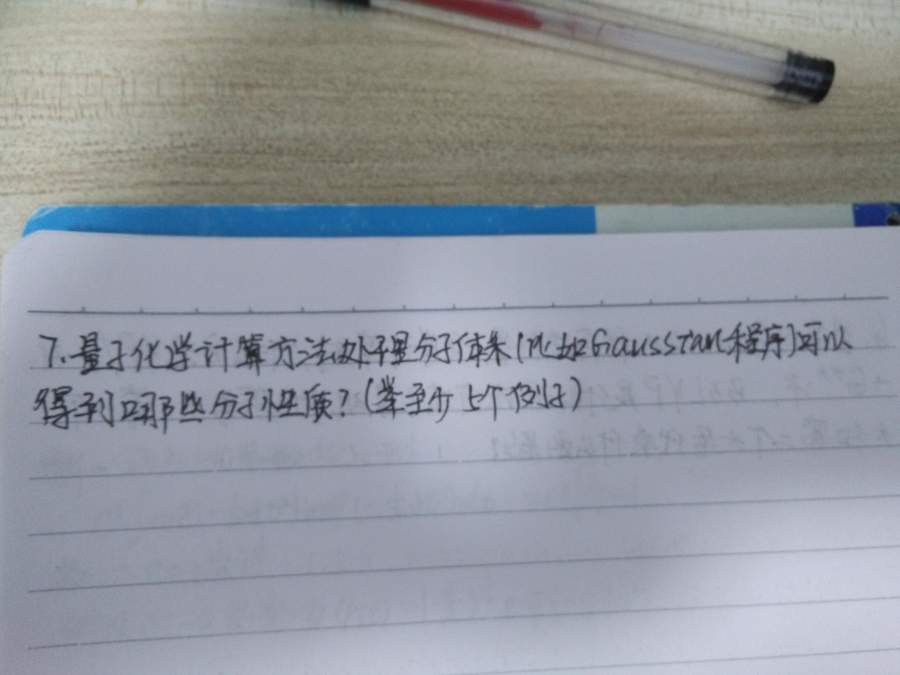 7.量子化学计算方法处理分子体系(比如Gaussian程序)可以
得到哪些分子性质?(举至少5个例子)